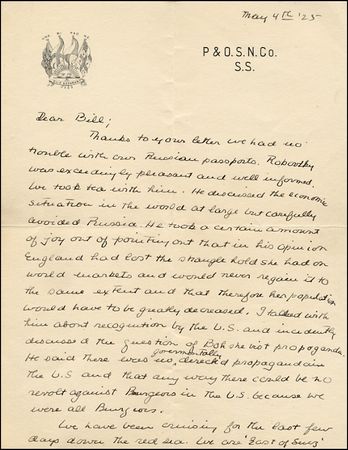 May 4th '25
P & O. S. N. Co.
S.S.
Dear Bill;
Thanks to your letter we had no
trouble with our Russian passports.
was exceedingly pleasant and well informed.
We took tea with him. He discussed the economic
situation in the world at large but carefully
avoided Russia. He took a certain amount
of joy out of pointing out that in his opinion
England had lost the strangle hold she had on
world markets and would never regain it to
the same extent and that therefore her population
would have to be greatly decreased. I talked with
him about recognition by the U.S. and incidently
discussed the question of Bolshevist propaganda.
He said there was no governmentally direct'd propaganda in
the U.S and that any way there could be no
revolt against Burgeors in the U.S. because we
were all Burgeors.
We have been cruising for the last few
days down the red sea. We are 'East of Suez'